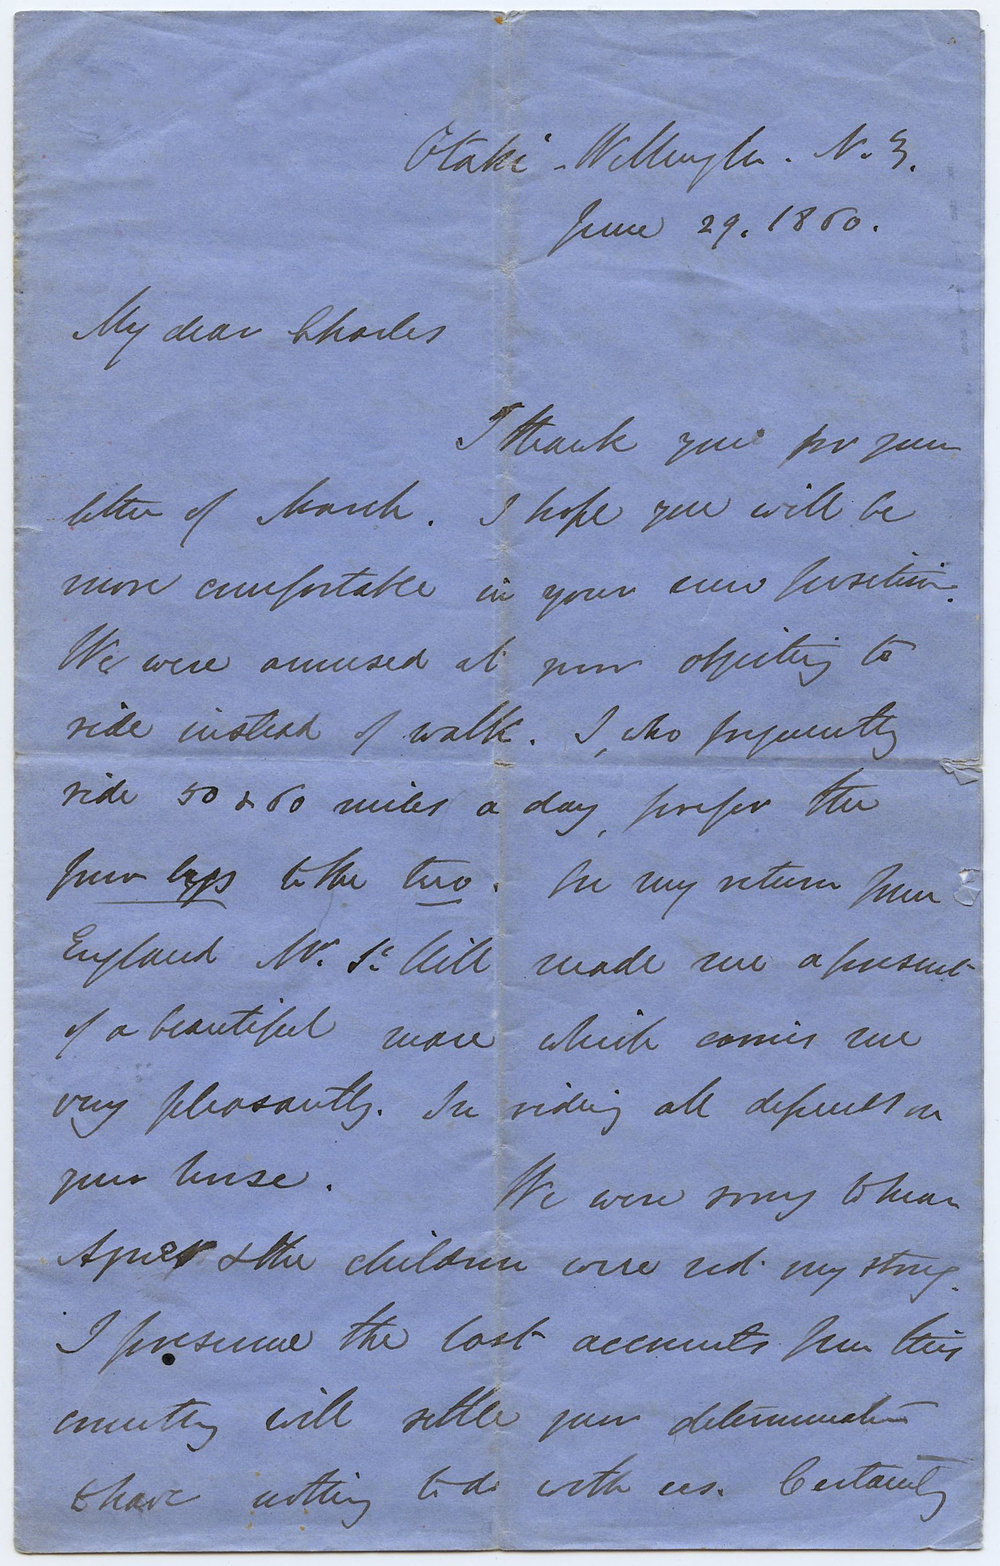 Otaki - Wellington. N.Z.
June 29. 1860.
My dear Charles
I thank you for your
letter of March. I hope you will be
more comfortable in your new position.
We were amused at your objecting to
ride instead of walk. I, who frequently
ride 50 & 60 miles a day, prefer the
four legs to the two. On my return from
England Mr. St. Hill made me a present
of a beautiful mare which carries me
very pleasantly. In riding all depends on
your horse. We were sorry to hear
Agnes & the children were not very strong.
I presume the last accounts from this
country will settle your determination
to have nothing to do with us. Certainly